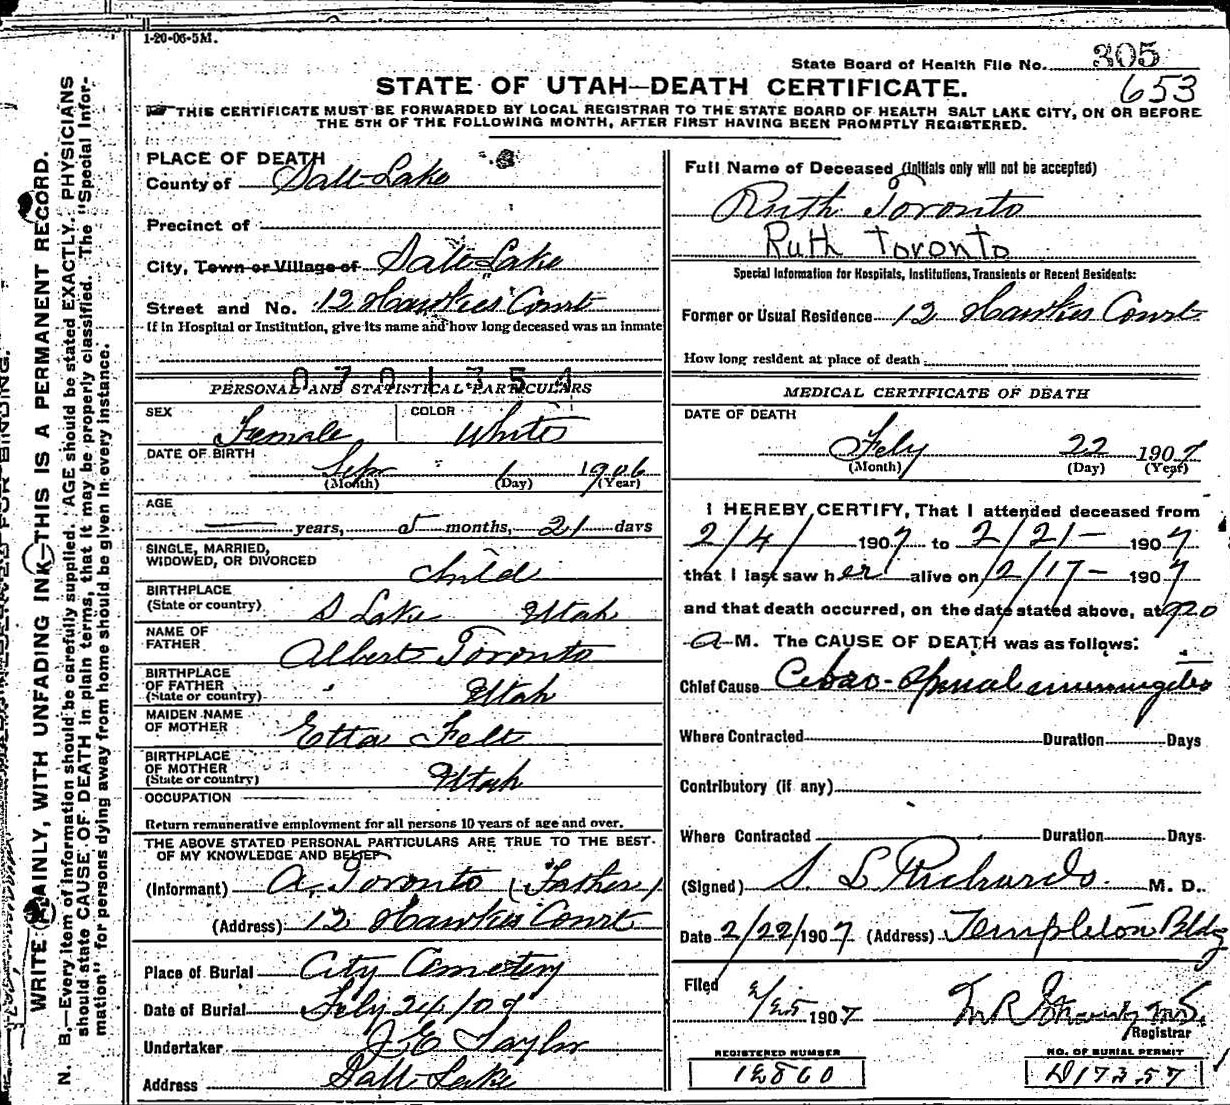 1-20-06-5M.
State Board of Health File No. 305
653
STATE OF UTAH—DEATH CERTIFICATE.
THIS CERTIFICATE MUST BE FORWARDED BY LOCAL REGISTRAR TO THE STATE BOARD OF HEALTH SALT LAKE CITY, ON OR BEFORE
THE 5TH OF THE FOLLOWING MONTH, AFTER FIRST HAVING BEEN PROMPTLY REGISTERED.
WRITE PLAINLY, WITH UNFADING INK—THIS IS A PERMANENT RECORD.
N. B.—Every item of information should be carefully supplied. AGE should be stated EXACTLY. PHYSICIANS
should state CAUSE OF DEATH in plain terms, that it may be properly classified. The "Special Infor-
mation" for persons dying away from home should be given in every instance.
PLACE OF DEATH
County of Salt Lake
Precinct of
City, Town or Village of Salt Lake
Street and No. 12 Hawkes Court
If in Hospital or Institution, give its name and how long deceased was an inmate
PERSONAL AND STATISTICAL PARTICULARS
SEX Female COLOR White
DATE OF BIRTH
Sep 1 1906
(Month) (Day) (Year)
AGE
years, 5 months, 21 days
SINGLE, MARRIED,
WIDOWED, OR DIVORCED Child
BIRTHPLACE
(State or country) S Lake Utah
NAME OF
FATHER Albert Toronto
BIRTHPLACE
OF FATHER
(State or country) Utah
MAIDEN NAME
OF MOTHER Etta Felt
BIRTHPLACE
OF MOTHER
(State or country) Utah
OCCUPATION
Return remunerative employment for all persons 10 years of age and over.
THE ABOVE STATED PERSONAL PARTICULARS ARE TRUE TO THE BEST
OF MY KNOWLEDGE AND BELIEF
(Informant) A. Toronto (Father)
(Address) 12 Hawkes Court
Place of Burial City Cemetery
Date of Burial Feby 24/07
Undertaker J E Taylor
Address Salt Lake
Full Name of Deceased (Initials only will not be accepted)
Ruth Toronto
Ruth Toronto
Special Information for Hospitals, Institutions, Transients or Recent Residents:
Former or Usual Residence 12 Hawkes Court
How long resident at place of death
MEDICAL CERTIFICATE OF DEATH
DATE OF DEATH
Feby 22 1907
(Month) (Day) (Year)
I HEREBY CERTIFY, That I attended deceased from
2/4/ 1907 to 2/21- 1907
that I last saw her alive on 2/17- 1907
and that death occurred, on the date stated above, at 920
a M. The CAUSE OF DEATH was as follows:
Chief Cause
Where Contracted Duration Days
Contributory (if any)
Where Contracted Duration Days
(Signed) S. L Richards. M. D.
Date 2/22/1907 (Address) Templeton Bldg
Filed 2/25 1907
Registrar
REGISTERED NUMBER
12860
NO. OF BURIAL PERMIT
D17357